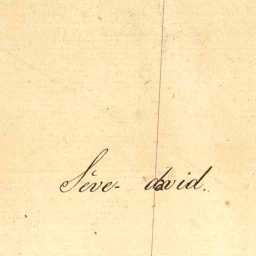 Séve- david.